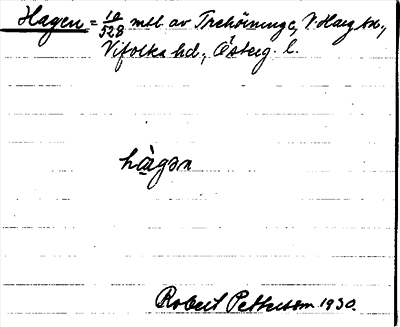 Hagen = 10/528 mtl av Trehörninge, V. Harg sn.,
Vifolka hd., Österg. l.
hàgən
Robert Pettersson 1930.